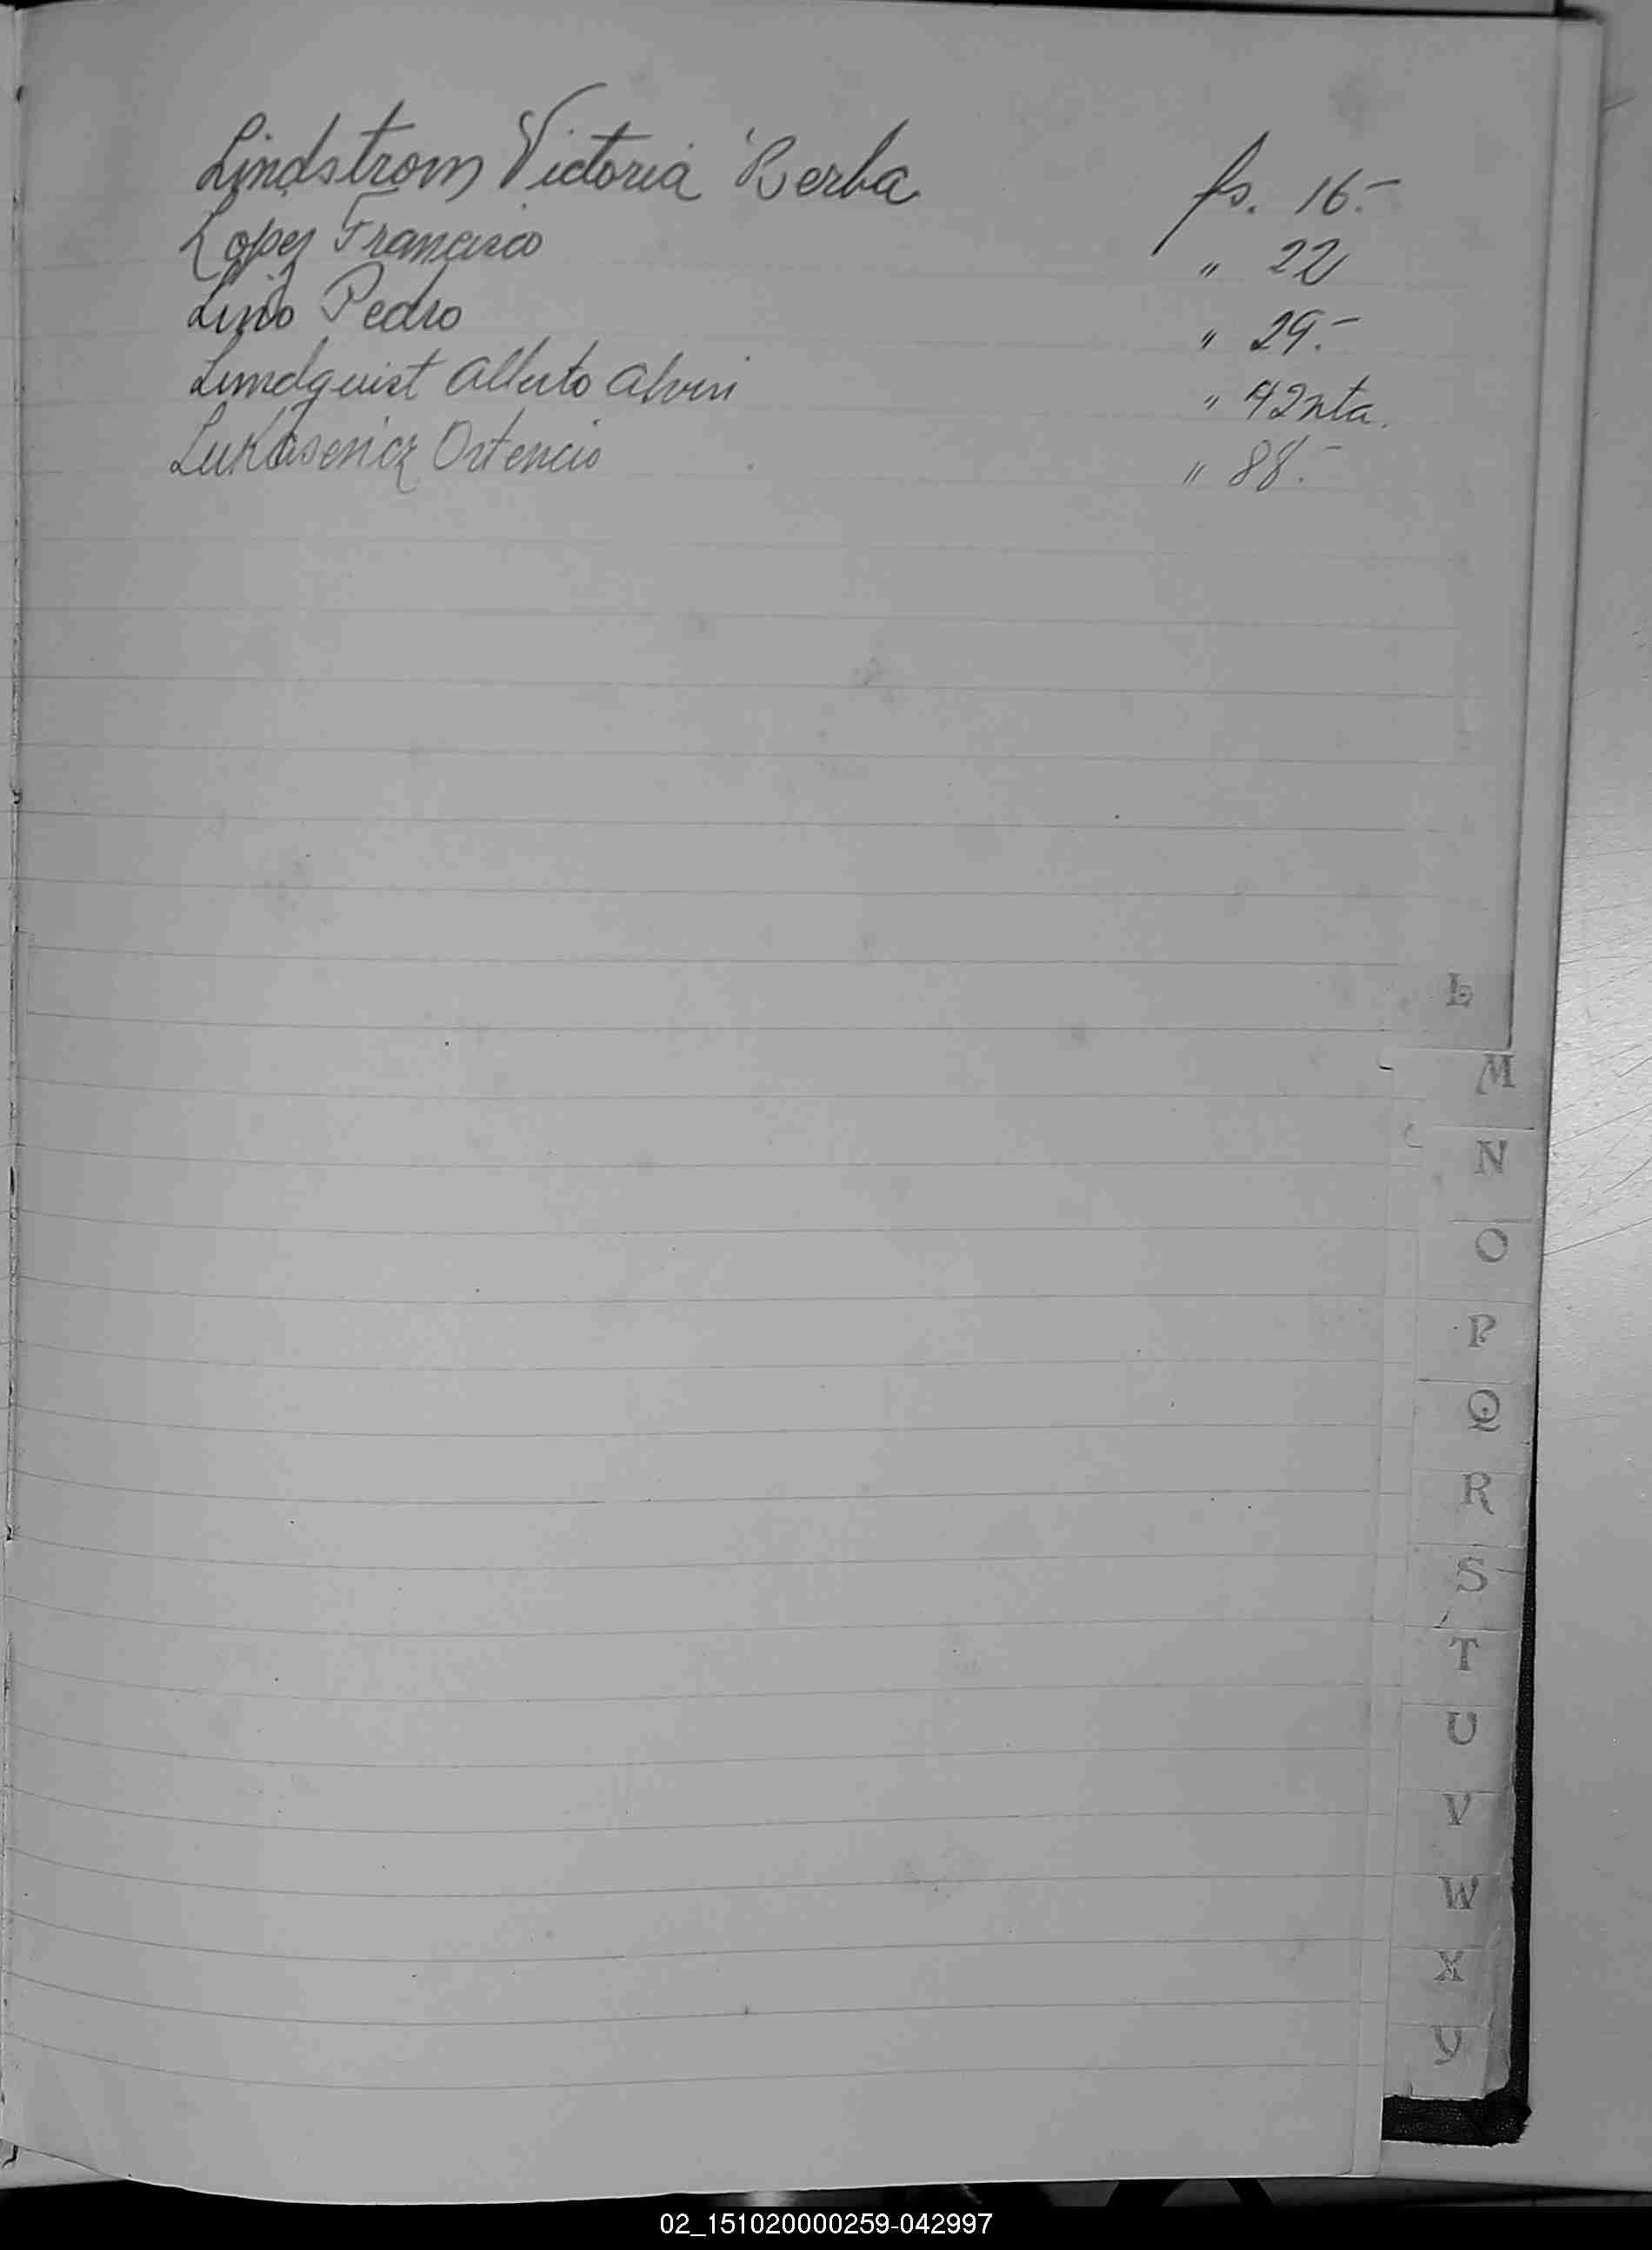 Lindstrom Victoria Berba fs. 16.-
Lopez Francisco " 22
Lino Pedro " 29.-
Lundquist Alberto Alvin " 42 vta.
Lukasenicz Ortencio " 88.-
L
M
N
O
P
Q
R
S
T
U
V
W
X
Y
02_151020000259-042997